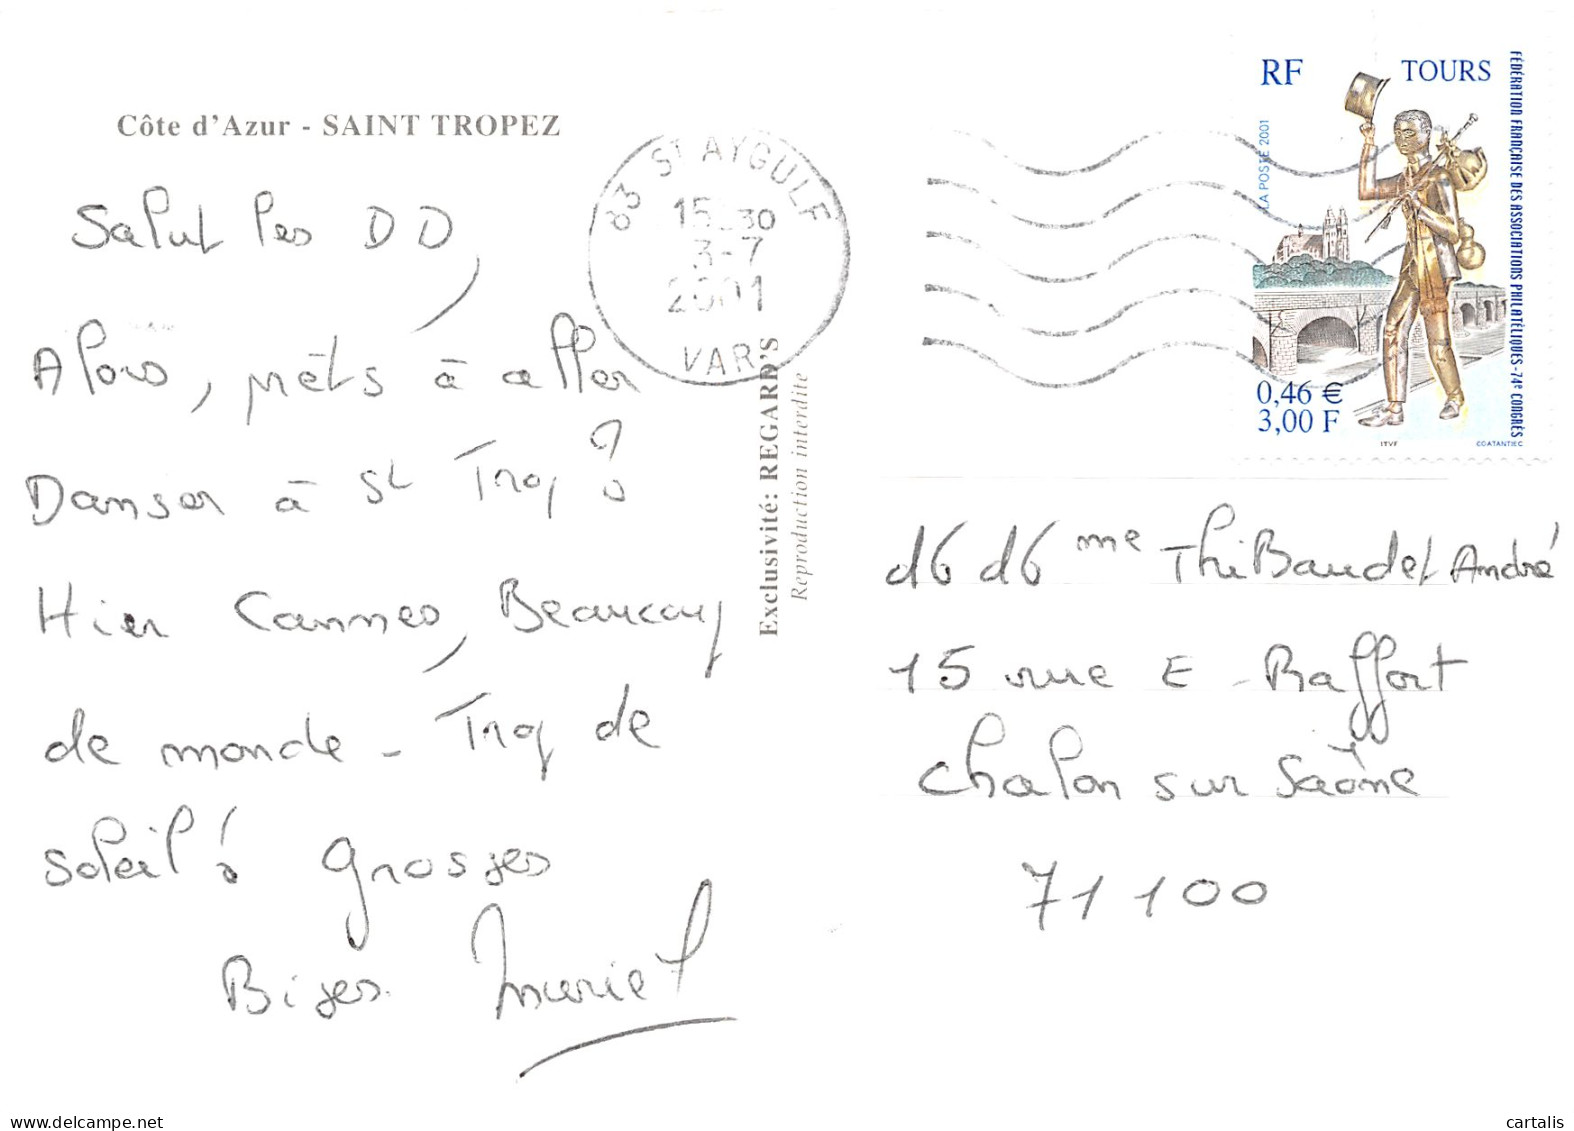 Côte d'Azur - SAINT TROPEZ
Salut les DD,
Alors, prêts à aller
Danser à St Trop ?
Hier Cannes, Beaucoup
de monde - Trop de
soleil ! Grosses
Bises. Muriel
83 ST AYGULF
15 30
3-7
2001
VAR
Exclusivité: REGARD'S
Reproduction interdite
RF
TOURS
LA POSTE 2001
FÉDÉRATION FRANÇAISE DES ASSOCIATIONS PHILATÉLIQUES - 74e CONGRÈS
0,46 €
3,00 F
ITVF
COATANTIEC
me Thibaudet André
15 rue E - Raffort
Chalon sur Saône
71100
delcampe.net
cartalis